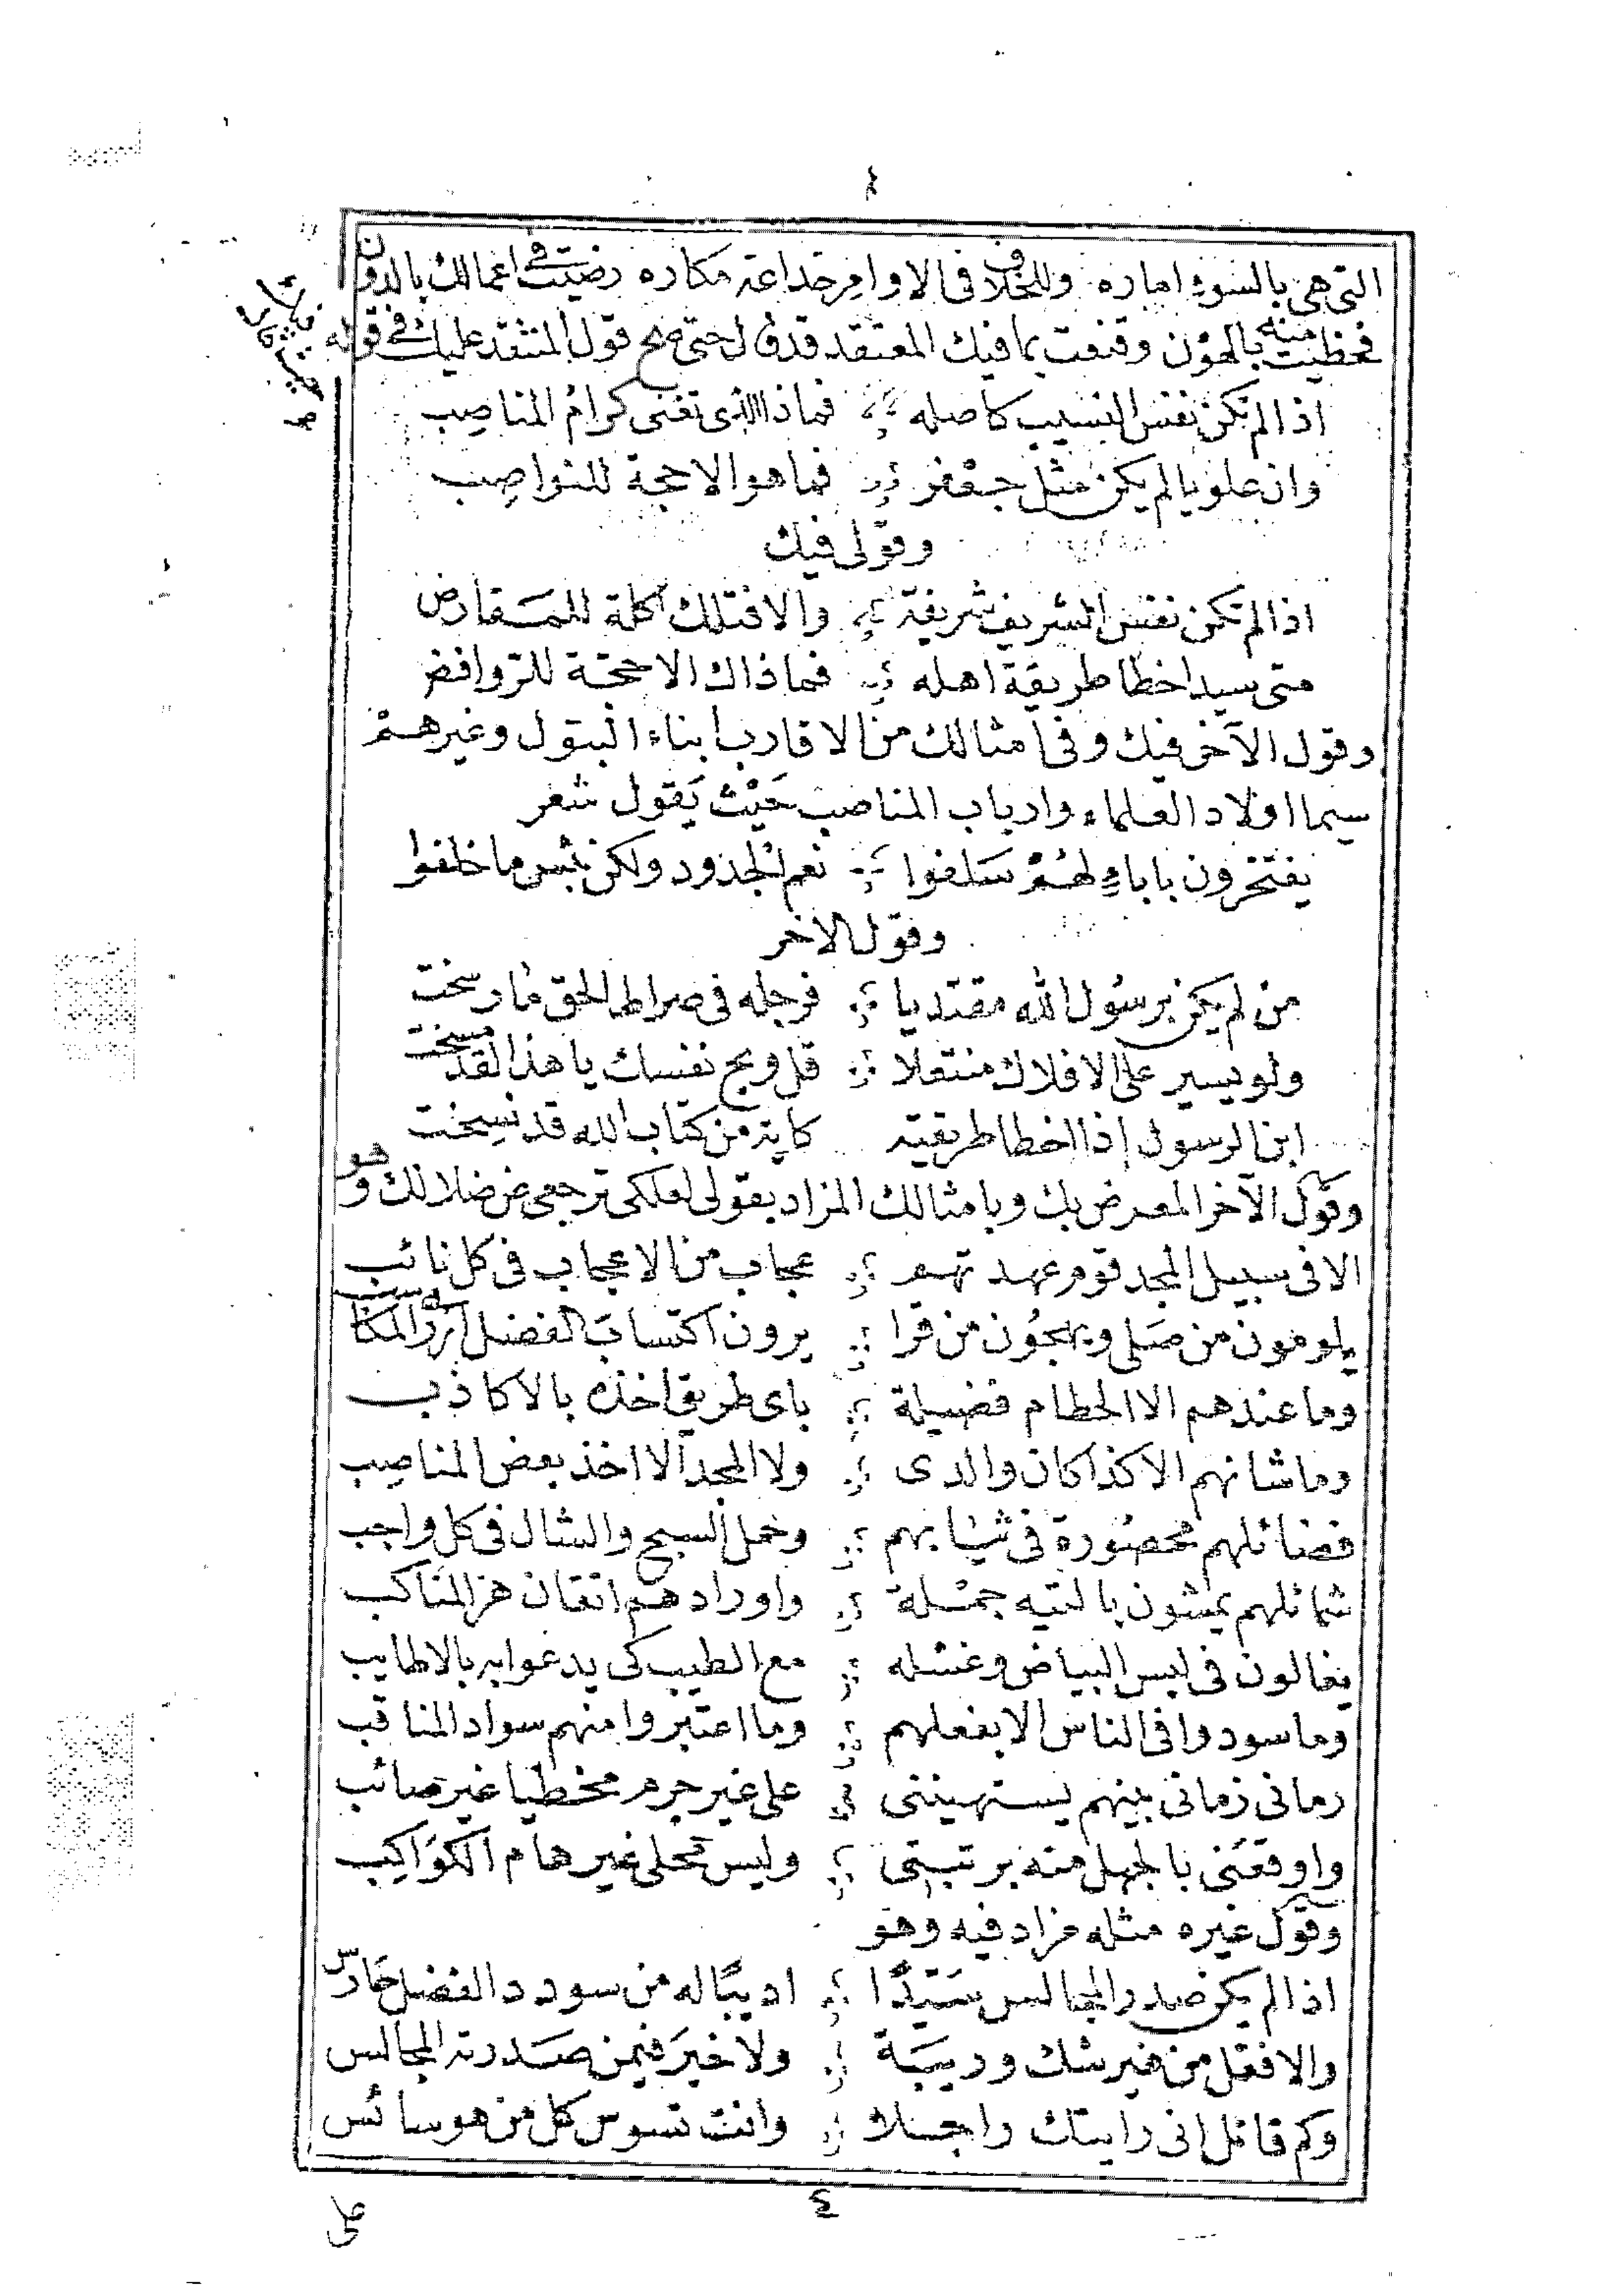 التى هى بالسوء اماره وللخلاف فى الاوامر خداعة مكاره رضيت فى اعمالك بالدون
فحظيت منه بالهون وقنعت بما فيك المعتقد قدقال حتى صح قول المنتقد عليك فى قوله
اذا لم تكن نفس النسيب كاصله فماذا الذى تغنى كرام المناصب
وان علويا لم يكن مثل جعفر فما هو الا حجة للنواصب
وقولى فيك
اذا لم تكن نفس الشريف شريفة والا فتلك اكلة للمقارض
متى سيد اخطا طريقة اهله فما ذاك الا حجة للروافض
وقول الآخر فيك وفى امثالك من الاقارب ابناء البتول وغيرهم
سيما اولاد العلماء وارباب المناصب حيث يقول شعر
يفتخرون باباء لهم سلفوا نعم الجدود ولكن بئس ما خلفوا
وقول الآخر
من لم يكن برسول الله مقتديا فرجله فى صراط الحق ما رسخت
ولو يسير على الافلاك منتعلا قل ويح نفسك يا هذا لقد مسخت
ابن الرسول إذا اخطا طريقته كاية من كتاب الله قد نسخت
وقول الآخر المعرض بك وبامثالك المزاد بقولى لعلك ترجعى عن ضلالك وهو
الا فى سبيل المجد قوم عهدتهم عجاب من الاعجاب فى كل نائب
يلومون من صلى ويهجون من قرا يرون اكتساب الفضل ازرا المكاسب
وما عندهم الا الحطام فضيلة باى طريق اخذه بالاكاذب
وما شانهم الا كذا كان والدى ولا المجد الا اخذ بعض المناصب
فضائلهم محصورة فى ثيابهم وحمل السبح والشال فى كل واجب
شمائلهم يمشون بالتيه جملة واورادهم اتقان هز المناكب
يغالون فى لبس البياض وغسله مع الطيب كى يدعوا به بالاطايب
وما سودوا فى الناس الا بفعلهم وما اعتبروا منهم سواد المناقب
رمانى زمانى بينهم يستهيننى على غير جرم مخطيا غير صائب
واوقعنى بالجهل منه برتبتى وليس محلى غير هام الكواكب
وقول غيره مثله مزاد فيه وهو
اذا لم يكن صدر المجالس سيدًا اديبًا له من سودد الفضل حارس
والا فقل من غير شك وريبة ولا خير فيمن صدرته المجالس
وكم قائل انى رايتك راجلا وانت تسوس كل من هو سائس
٤